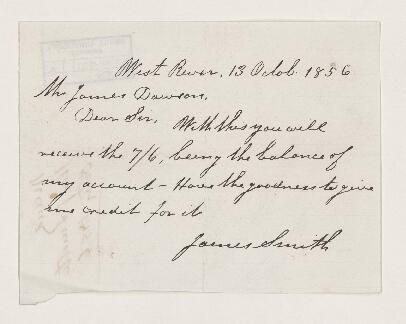 West River, 13 Octob. 1856
Mr James Dawson,
Dear Sir. With this you will
receive the 7/6, being the balance of
my account - Have the goodness to give
me credit for it
James Smith